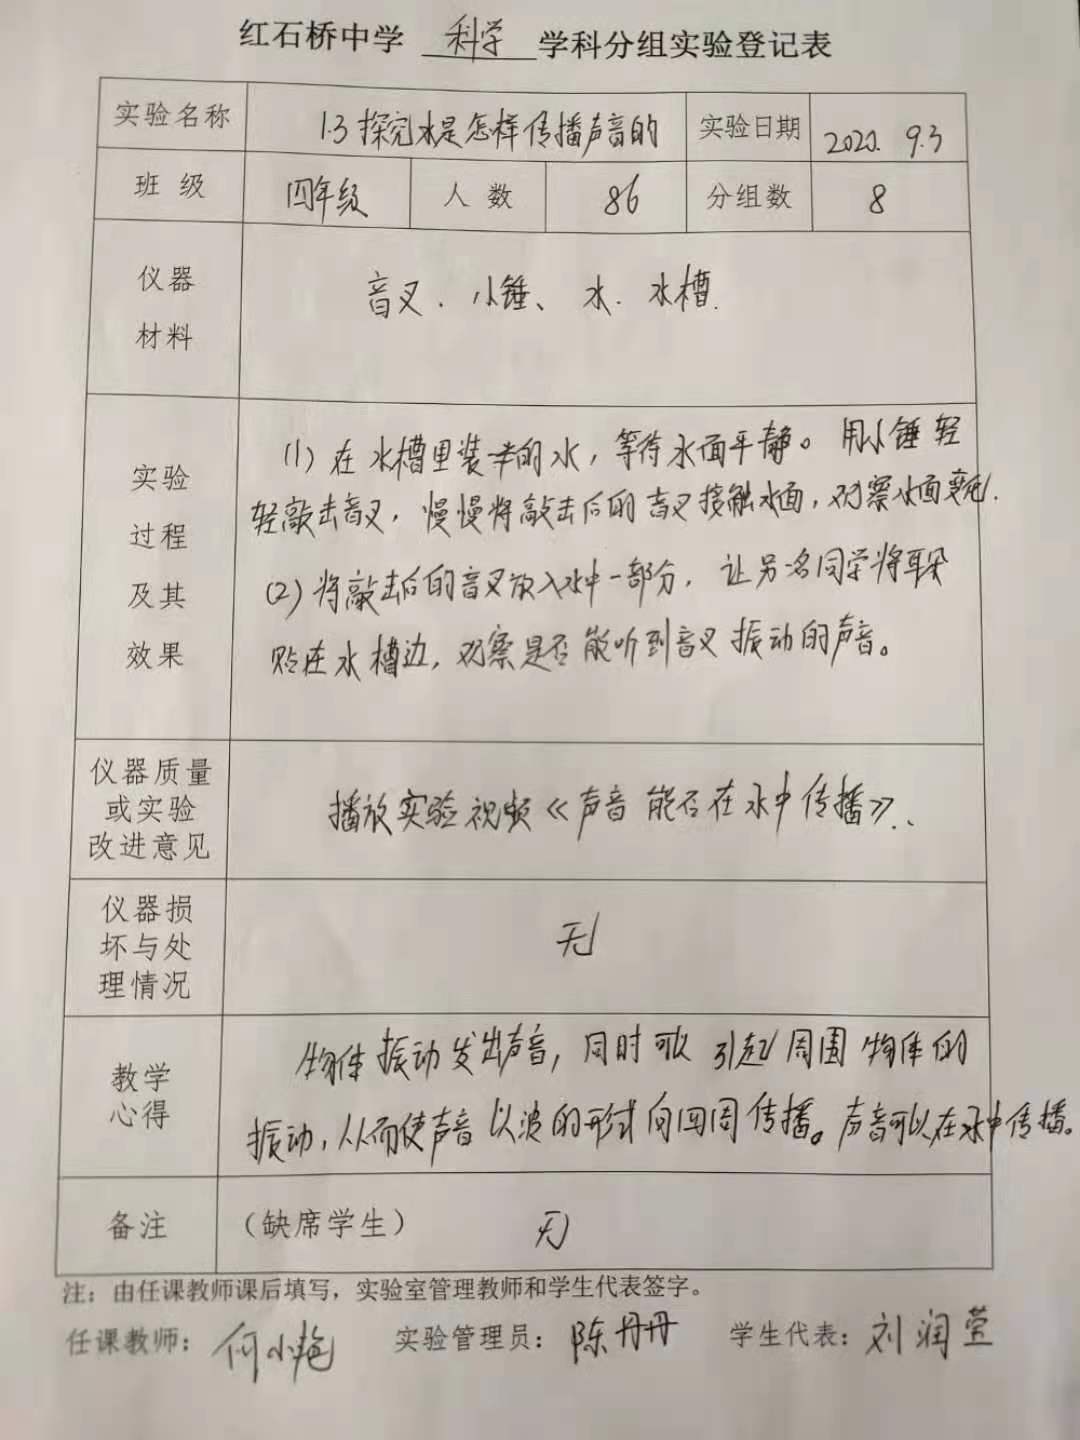 红石桥中学 科学 学科分组实验登记表
实验名称 1.3探究水是怎样传播声音的 实验日期 2020. 9.3
班 级 四年级 人 数 86 分组数 8
仪器
材料
音叉. 小锤、水. 水槽.
实验
过程
及其
效果
(1) 在水槽里装半的水，等待水面平静。用小锤轻
轻敲击音叉，慢慢将敲击后的音叉接触水面，观察水面变化.
(2) 将敲击后的音叉放入水中一部分，让另名同学将耳朵
贴在水槽边，观察是否能听到音叉振动的声音。
仪器质量
或实验
改进意见
播放实验视频《声音能否在水中传播》..
仪器损
坏与处
理情况
无
教学
心得
物体振动发出声音，同时可以引起周围物体的
振动，从而使声音以波的形式向四周传播。声音可以在水中传播。
备注 （缺席学生） 无
注：由任课教师课后填写，实验室管理教师和学生代表签字。
任课教师：何小艳 实验管理员：陈丹丹 学生代表：刘润萱